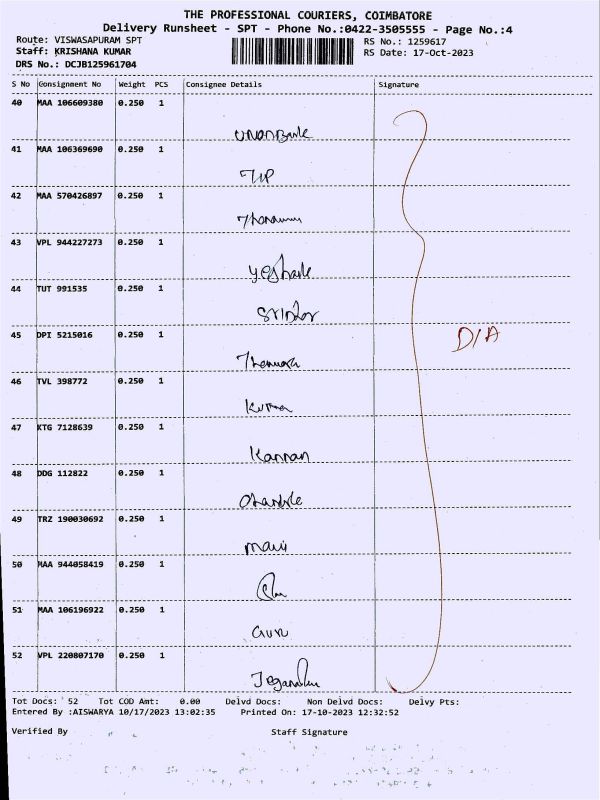 THE PROFESSIONAL COURIERS, COIMBATORE
Delivery Runsheet - SPT - Phone No.:0422-3505555 - Page No.:4
Route: VISWASAPURAM SPT RS No.: 1259617
Staff: KRISHANA KUMAR RS Date: 17-Oct-2023
DRS No.: DCJB125961704
S No Consignment No Weight PCS Consignee Details Signature
40 MAA 106609380 0.250 1
41 MAA 106369690 0.250 1
TIP
42 MAA 570426897 0.250 1
43 VPL 944227273 0.250 1
44 TUT 991535 0.250 1
45 DPI 5215016 0.250 1
D/A
46 TVL 398772 0.250 1
47 KTG 7128639 0.250 1
Kannan
48 DDG 112822 0.250 1
49 TRZ 190030692 0.250 1
mani
50 MAA 944058419 0.250 1
51 MAA 106196922 0.250 1
Guru
52 VPL 220807170 0.250 1
Tot Docs: 52 Tot COD Amt: 0.00 Delvd Docs: Non Delvd Docs: Delvy Pts:
Entered By :AISWARYA 10/17/2023 13:02:35 Printed On: 17-10-2023 12:32:52
Verified By Staff Signature